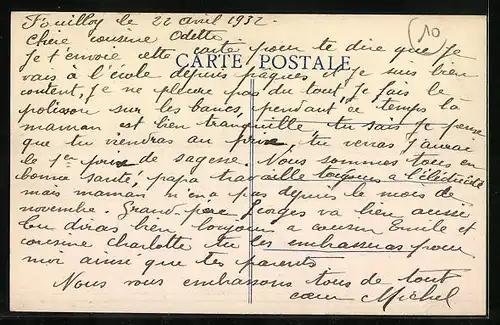 Fouilloy le 22 avril 1932.
(10)
Chère cousine Odette
Je t'envoie cette carte pour te dire que je
CARTE POSTALE
vais à l'école depuis paques et je suis bien
content, je ne pleure pas du tout, je fais le
polisson sur les bancs, pendant ce temps là
maman est bien tranquille, tu sais je pense
que tu viendras au prix, tu verras j'aurai
le 1er prix de sagesse. Nous sommes tous en
bonne santé, papa travaille toujours à l'éléctricité
mais maman n'en a pas depuis le mois de
novembre. Grand-père Georges va bien aussi
tu diras bien toujours a cousin Emile et
cousine Charlotte tu les embrasseras pour
moi ainsi que tes parents
Nous vous embrassons tous de tout
cœur Michel